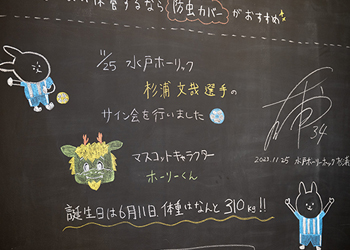 保管するなら防虫カバーがおすすめ
11/25 水戸ホーリック
杉浦文哉選手の
サイン会を行いました
34
2023.11.25 水戸ホーリホック
マスコットキャラクター
ホーリーくん
誕生日は6月11日 体重はなんと310kg!!